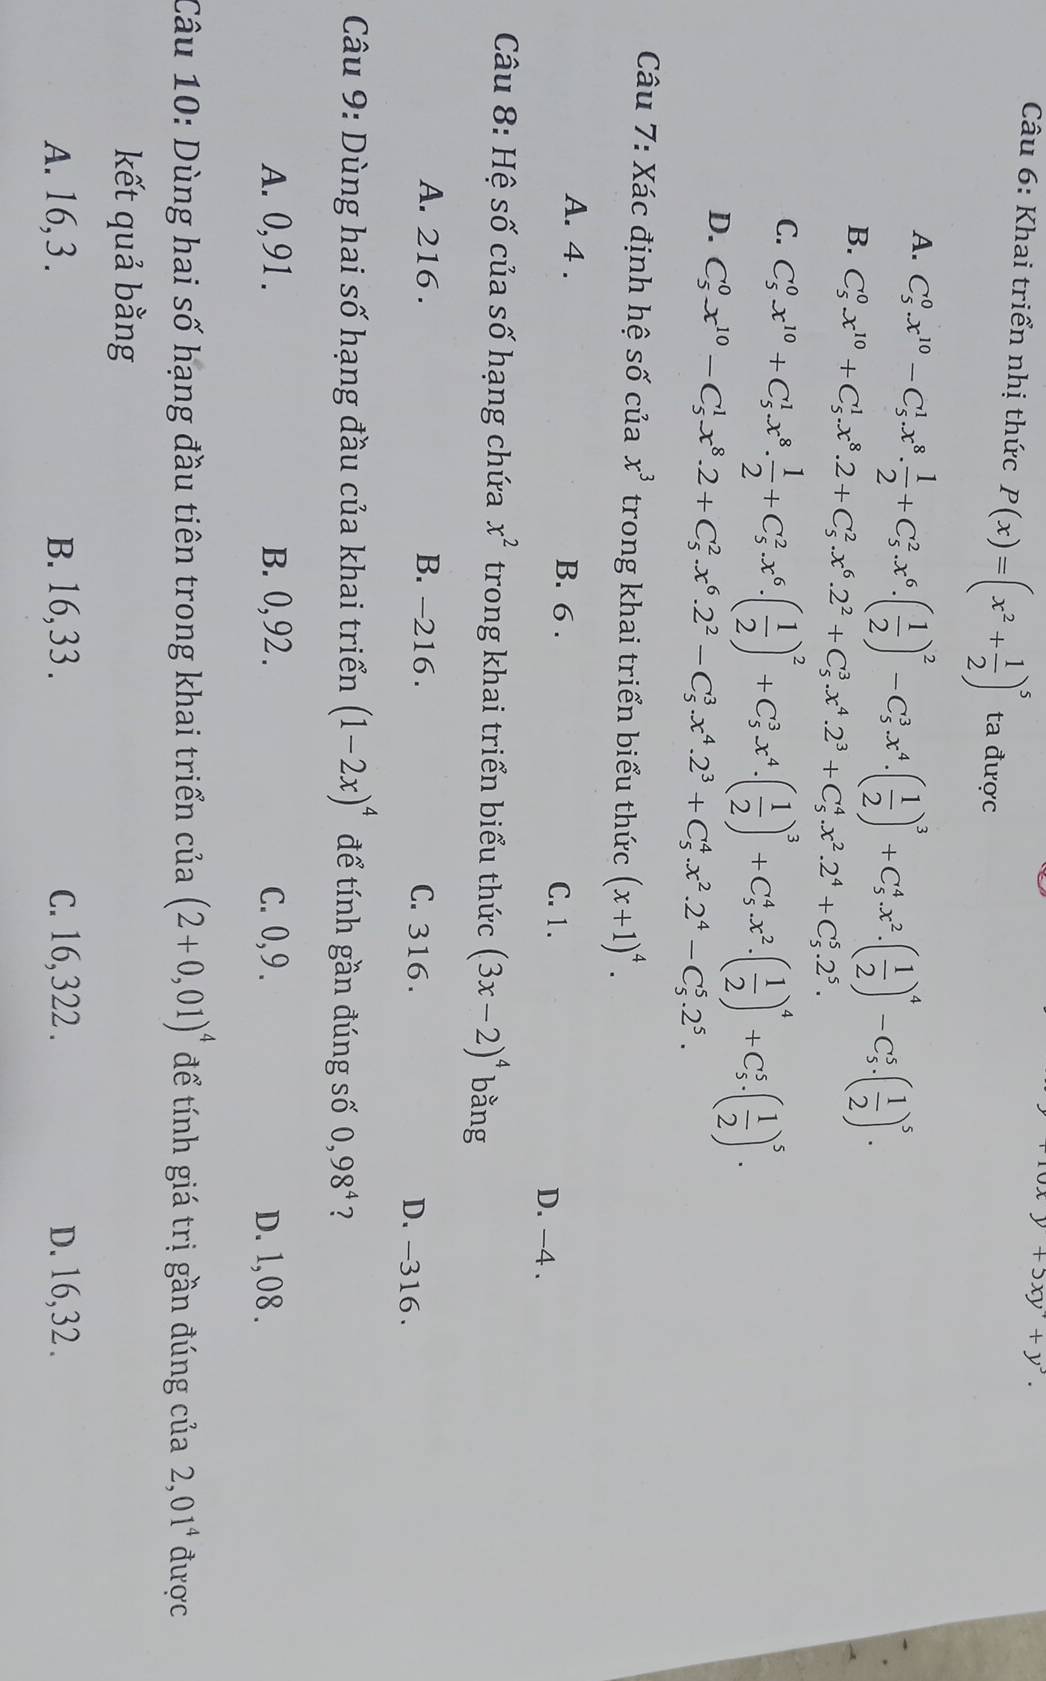 + 5xy⁴ + y⁵.
Câu 6: Khai triển nhị thức P(x) = (x² + 1/2)⁵ ta được
A. C₅⁰.x¹⁰ − C₅¹.x⁸.1/2 + C₅².x⁶.(1/2)² − C₅³.x⁴.(1/2)³ + C₅⁴.x².(1/2)⁴ − C₅⁵.(1/2)⁵.
B. C₅⁰.x¹⁰ + C₅¹.x⁸.2 + C₅².x⁶.2² + C₅³.x⁴.2³ + C₅⁴.x².2⁴ + C₅⁵.2⁵.
C. C₅⁰.x¹⁰ + C₅¹.x⁸.1/2 + C₅².x⁶.(1/2)² + C₅³.x⁴.(1/2)³ + C₅⁴.x².(1/2)⁴ + C₅⁵.(1/2)⁵.
D. C₅⁰.x¹⁰ − C₅¹.x⁸.2 + C₅².x⁶.2² − C₅³.x⁴.2³ + C₅⁴.x².2⁴ − C₅⁵.2⁵.
Câu 7: Xác định hệ số của x³ trong khai triển biểu thức (x+1)⁴.
A. 4. B. 6. C. 1. D. −4.
Câu 8: Hệ số của số hạng chứa x² trong khai triển biểu thức (3x−2)⁴ bằng
A. 216. B. −216. C. 316. D. −316.
Câu 9: Dùng hai số hạng đầu của khai triển (1−2x)⁴ để tính gần đúng số 0,98⁴?
A. 0,91. B. 0,92. C. 0,9. D. 1,08.
Câu 10: Dùng hai số hạng đầu tiên trong khai triển của (2+0,01)⁴ để tính giá trị gần đúng của 2,01⁴ được
kết quả bằng
A. 16,3. B. 16,33. C. 16,322. D. 16,32.